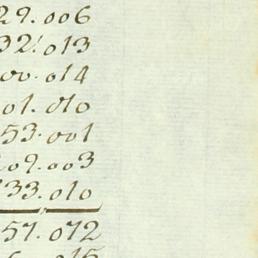 29.006
32.013
00.014
01.010
53.001
09.003
33.010
57.072